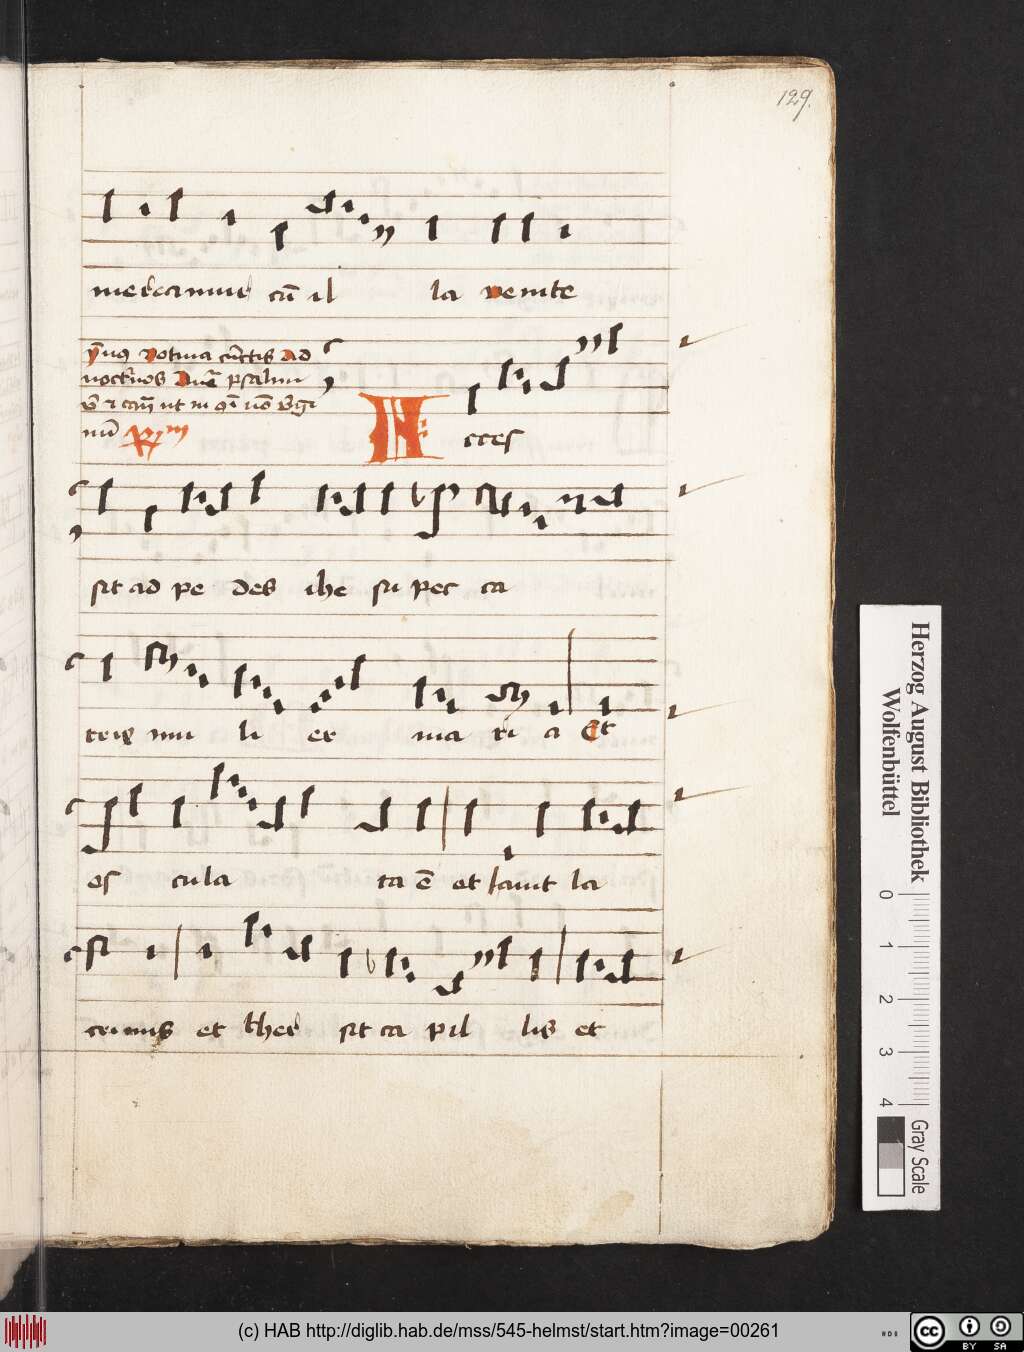 129.
mereamur cū il la venite
y̅nꝰ votiua cūctis Ad
noctu̅os
nū R̄m
ccessit ad pe des ihe su pec ca
tris mu li er ma ri a Et
os cu la ta ē et lauit la
crimis et t̾her sit ca pil lis et
Herzog August Bibliothek
Wolfenbüttel
0 1 2 3 4
Gray Scale
(c) HAB http://diglib.hab.de/mss/545-helmst/start.htm?image=00261
cc BY SA